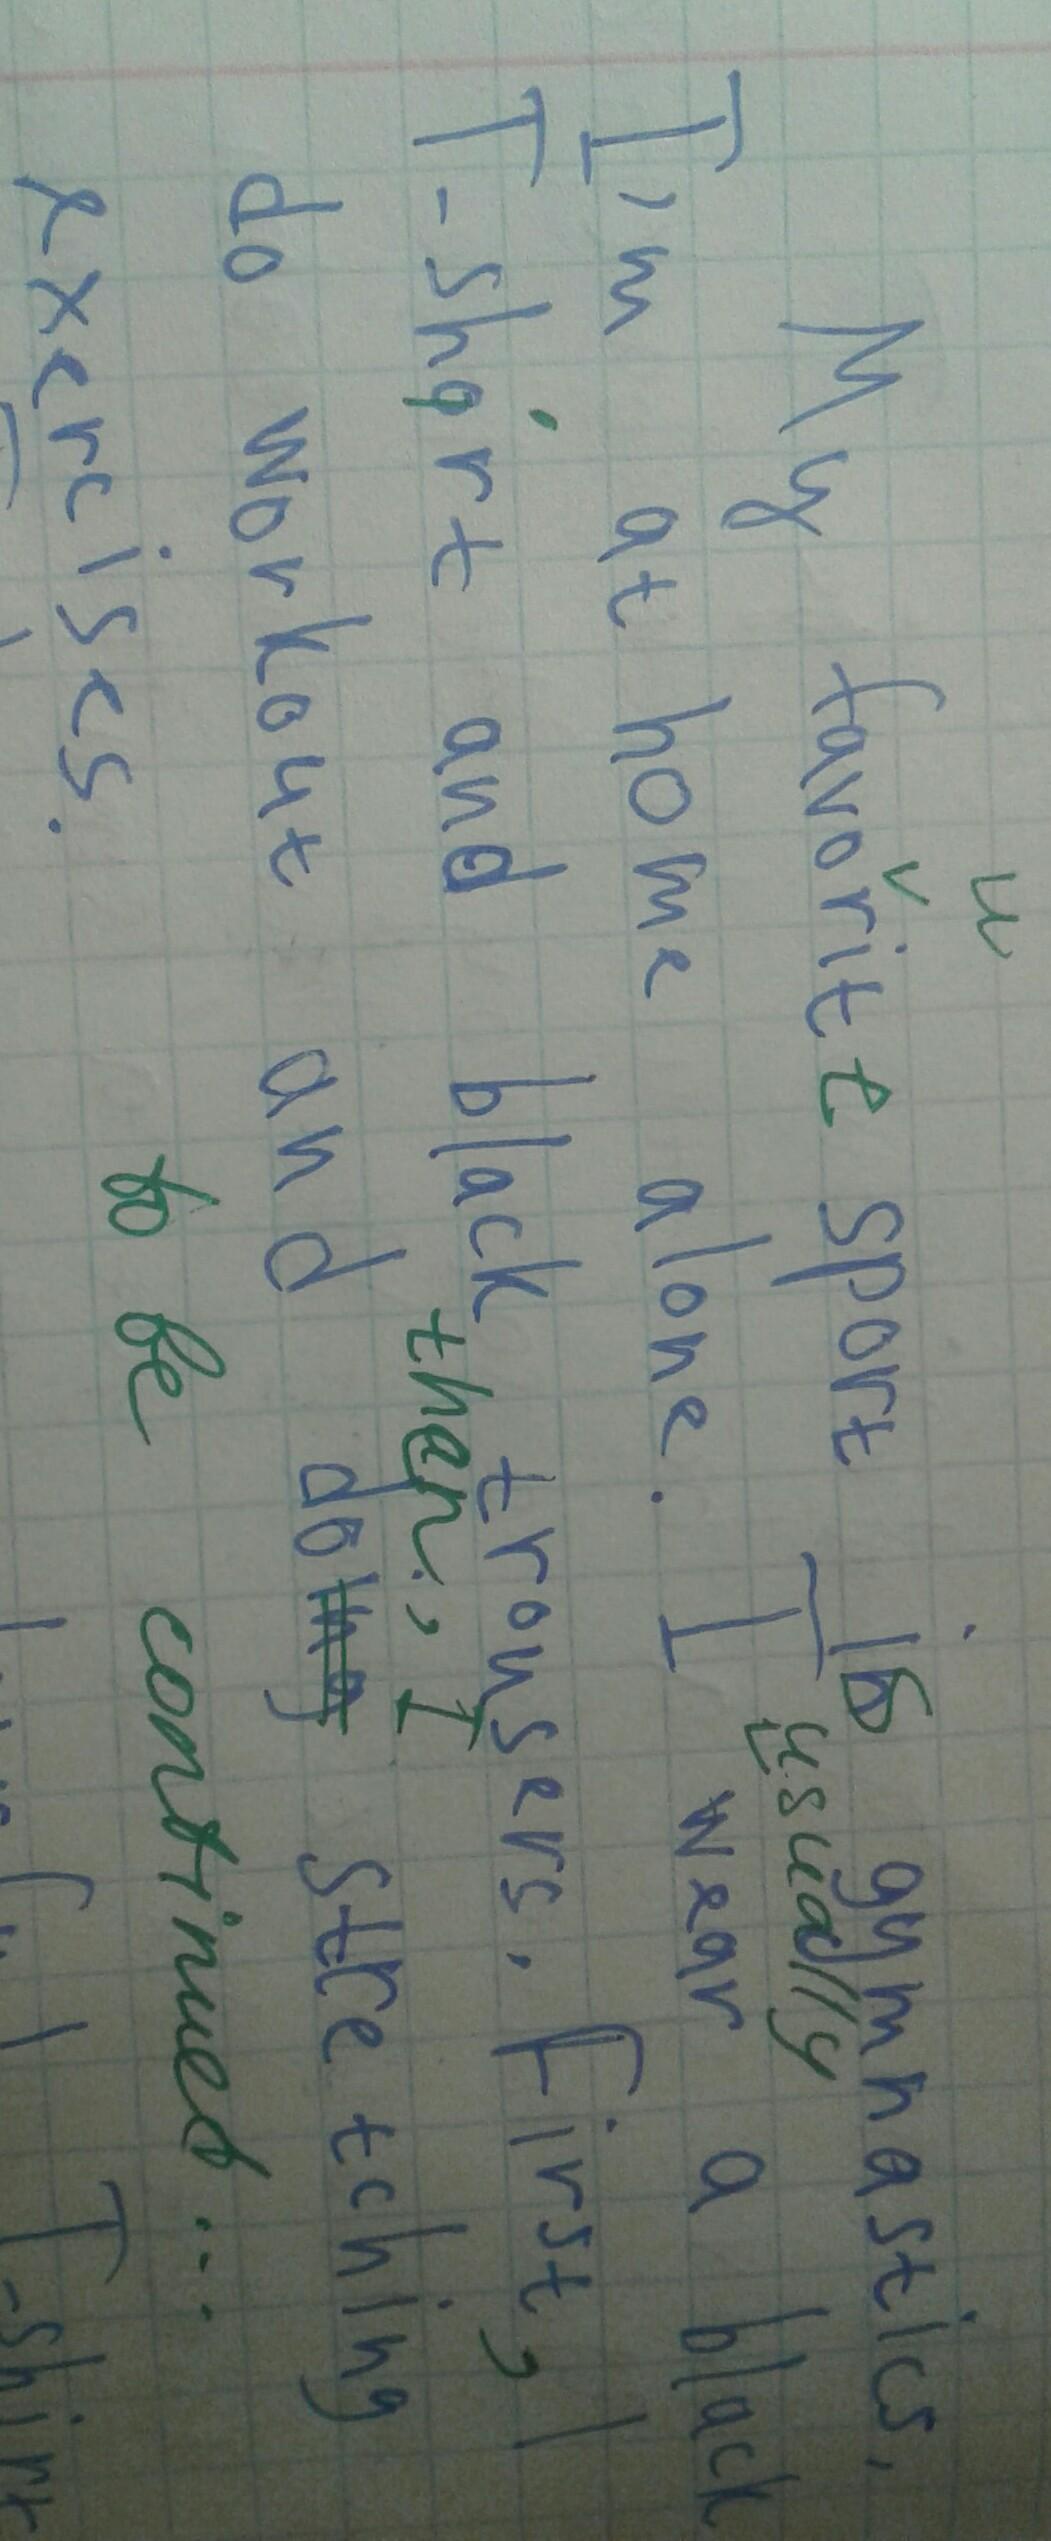 u
My favorite sport is gymnastics.
usually
I'm at home alone. I wear a black
T-shirt and black trousers. First, I
then, I
do workout and doing stretching
exercises.
to be continued...
T-shirt